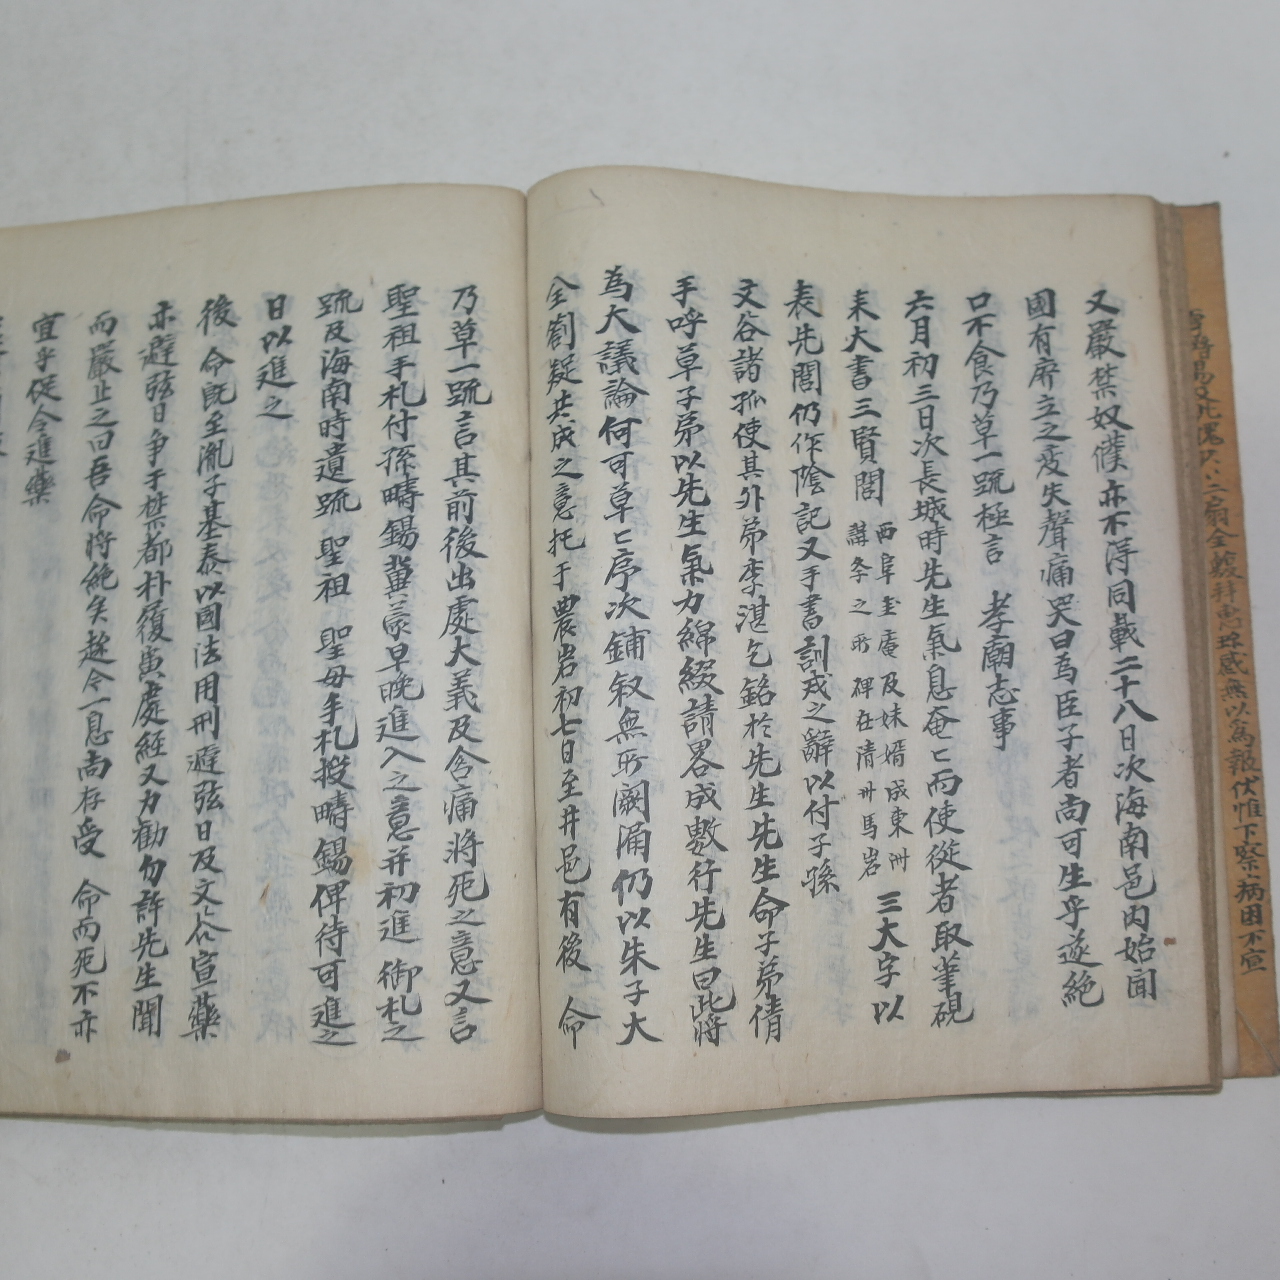 又嚴禁奴僕亦不淂同載二十八日次海南邑內始聞
國有廢立之变失聲痛哭曰爲臣子者尚可生乎遂絶
口不食乃草一䟽極言 孝廟志事
六月初三日次長城時先生氣息奄〻而使從者取筆硯
来大書三賢閭
西阜坒庵及妹婿成東洲
講學之所碑在清州馬岩
三大字以
表先閭仍作陰記又手書訓戒之辭以付子孫
文谷諸孤使其外弟李湛乞銘於先生先生命子弟倩
手呼草子弟以先生氣力綿綴請畧成數行先生曰此將
為大議論何可草〻序次鋪叙無所闕漏仍以朱子大
全劄疑共成之意托于農岩初七日至井邑有後 命
乃草一䟽言其前後出處大義及含痛將死之意又言
聖祖手札付孫疇錫冀蒙早晚進入之意并初進 御札之
䟽及海南時遺䟽 聖祖 聖母手札授疇錫俾待可進之
日以進之
後 命旣至胤子基泰以國法用刑避弦日及文谷宣藥
亦避弦日争于禁都朴履寅慶經又力勸勿許先生聞
而嚴止之曰吾命將絶矣趂今一息尚存受 命而死不亦
宜乎促令進藥
二扇全 拜惠 感無以為報伏惟下察病困不宣